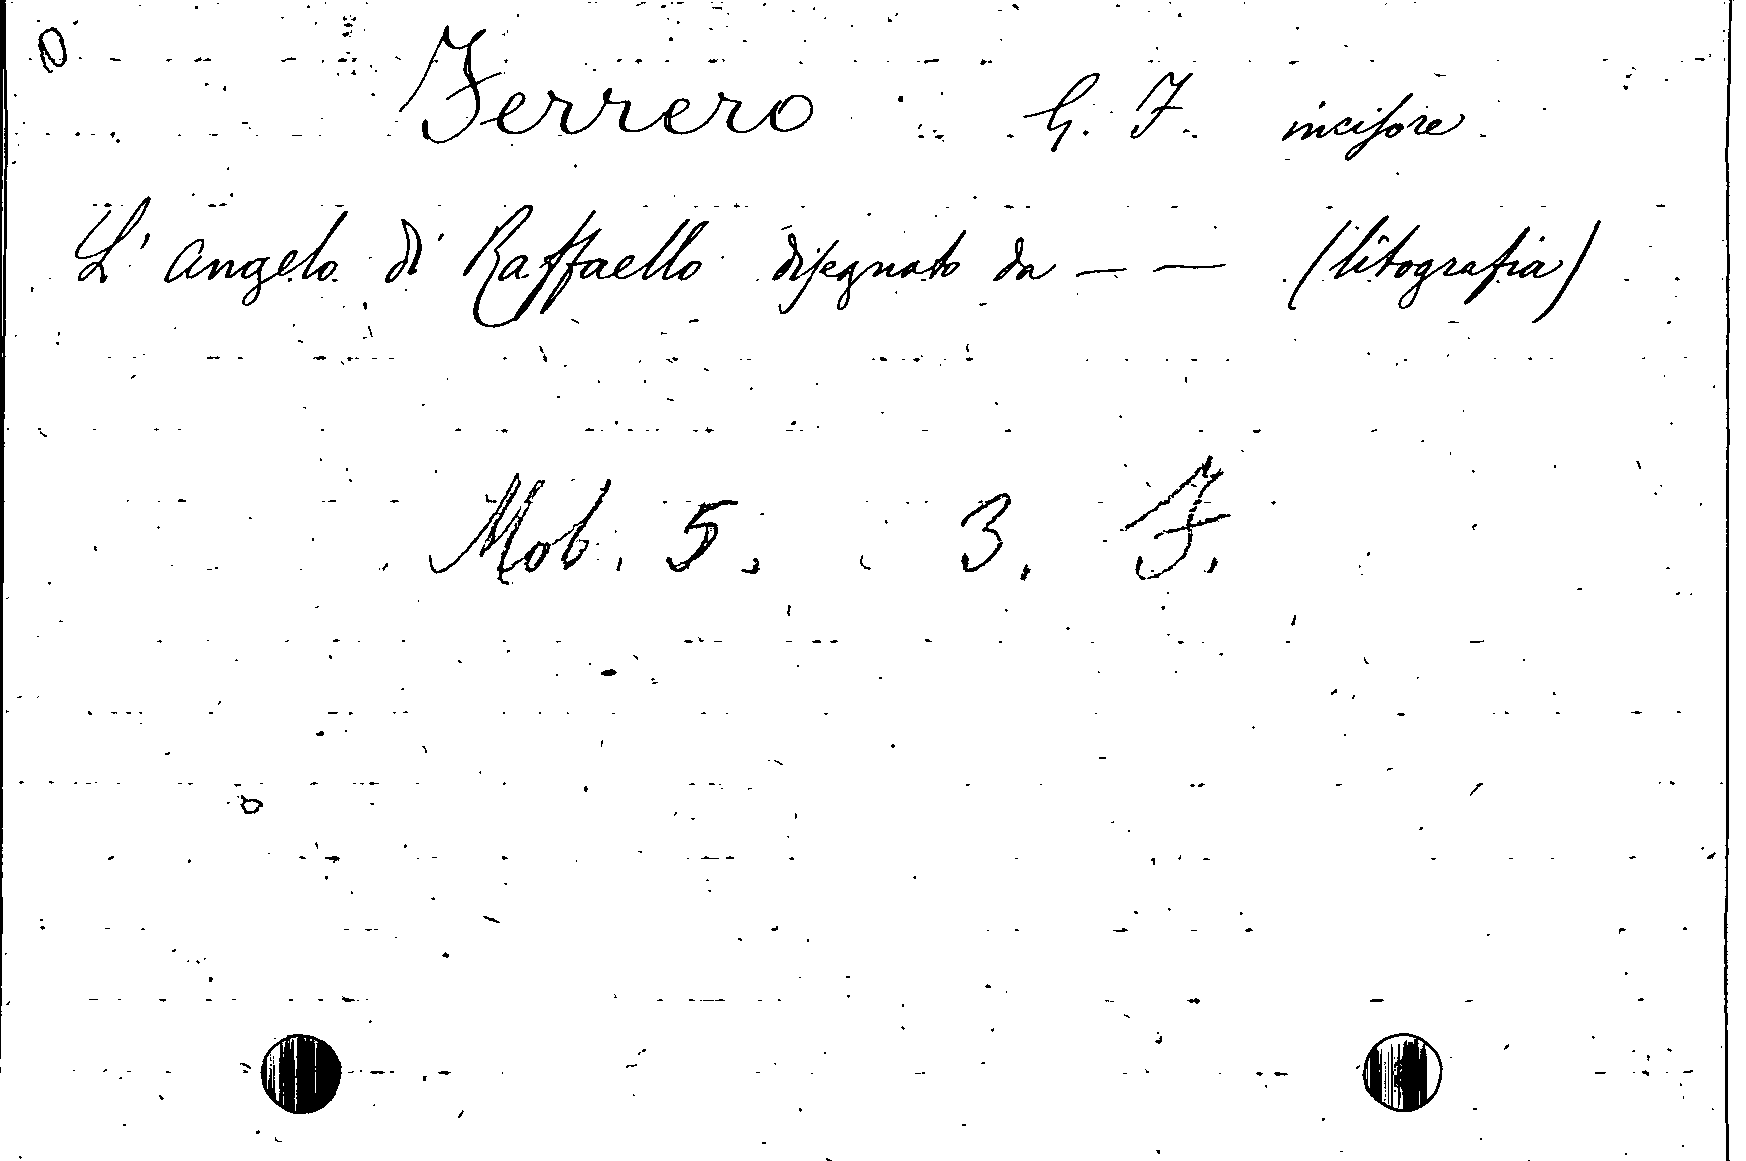 Ferrero G. F. incisore
L'angelo di Raffaello disegnato da — — (litografia)
Mob. 5. 3. F.